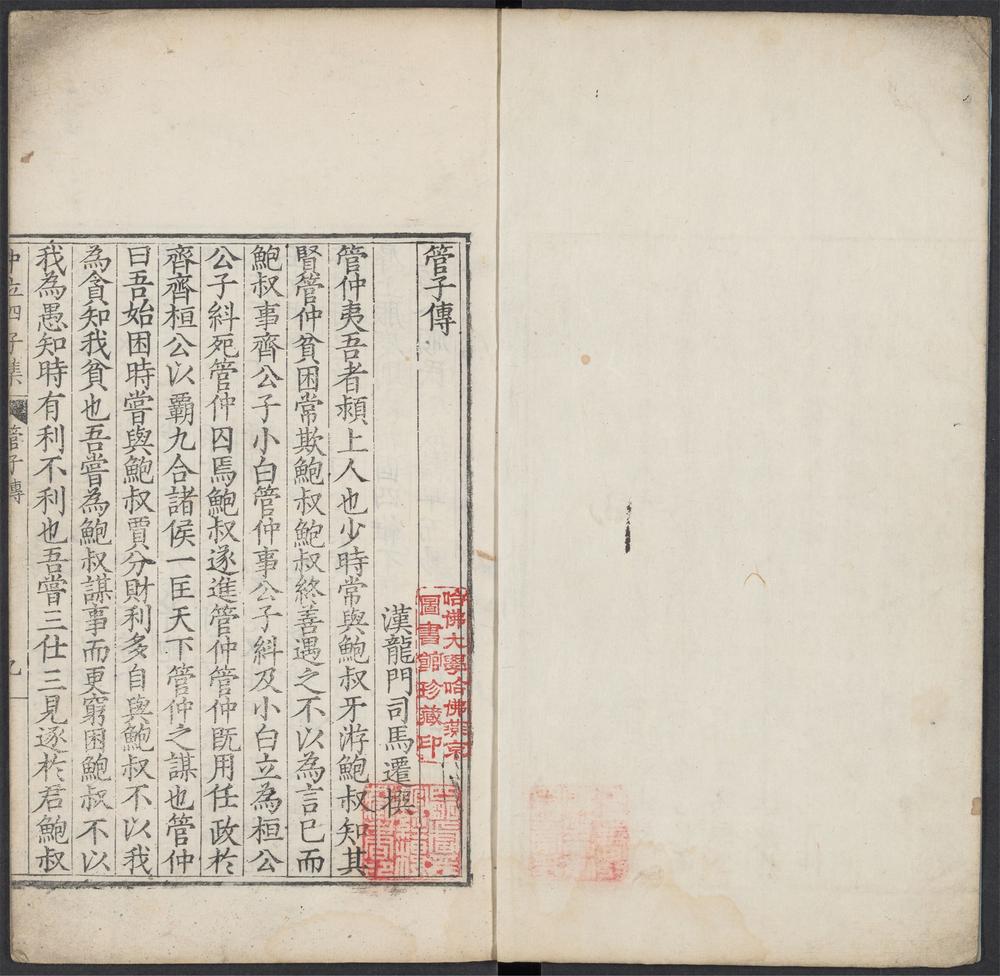 管子傳
漢龍門司馬遷撰
管仲夷吾者潁上人也少時常與鮑叔牙游鮑叔知其
賢管仲貧困常欺鮑叔鮑叔終善遇之不以為言已而
鮑叔事齊公子小白管仲事公子糾及小白立為桓公
公子糾死管仲囚焉鮑叔遂進管仲管仲既用任政於
齊齊桓公以霸九合諸侯一匡天下管仲之謀也管仲
曰吾始困時嘗與鮑叔賈分財利多自與鮑叔不以我
為貪知我貧也吾嘗為鮑叔謀事而更窮困鮑叔不以
我為愚知時有利不利也吾嘗三仕三見逐於君鮑叔
中立四子集
管子傳
哈佛大學哈佛燕京
圖書館珍藏印